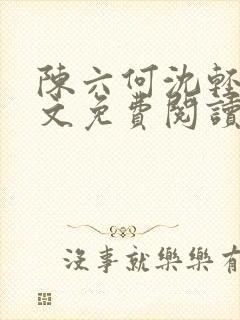 陳六何沈輕
文免費閱讀
沒事就樂樂有